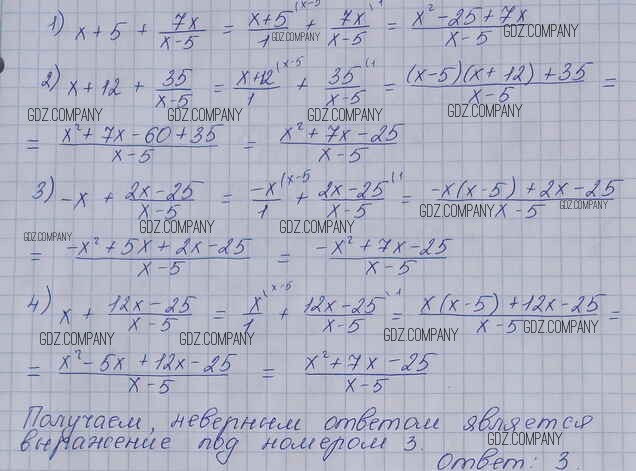 1) x+5 + 7x/(x-5) = (x+5)/1 (x-5 + 7x/(x-5) (1 = (x² - 25 + 7x)/(x-5)
GDZ.COMPANY GDZ.COMPANY
2) x+12 + 35/(x-5) = (x+12)/1 (x-5 + 35/(x-5) (1 = ((x-5)(x+12) + 35)/(x-5) =
GDZ.COMPANY GDZ.COMPANY GDZ.COMPANY GDZ.COMPANY
= (x² + 7x - 60 + 35)/(x-5) = (x² + 7x - 25)/(x-5)
3) -x + (2x-25)/(x-5) = -x/1 (x-5 + (2x-25)/(x-5) (1 = (-x(x-5) + 2x - 25)/(x-5)
GDZ.COMPANY GDZ.COMPANY GDZ.COMPANY GDZ.COMPANY
GDZ.COMPANY
= (-x² + 5x + 2x - 25)/(x-5) = (-x² + 7x - 25)/(x-5)
4) x + (12x-25)/(x-5) = x/1 (x-5 + (12x-25)/(x-5) (1 = (x(x-5) + 12x - 25)/(x-5) =
GDZ.COMPANY GDZ.COMPANY GDZ.COMPANY GDZ.COMPANY
= (x² - 5x + 12x - 25)/(x-5) = (x² + 7x - 25)/(x-5)
Получаем, неверным ответом является
выражение под номером 3.
GDZ.COMPANY
Ответ: 3.